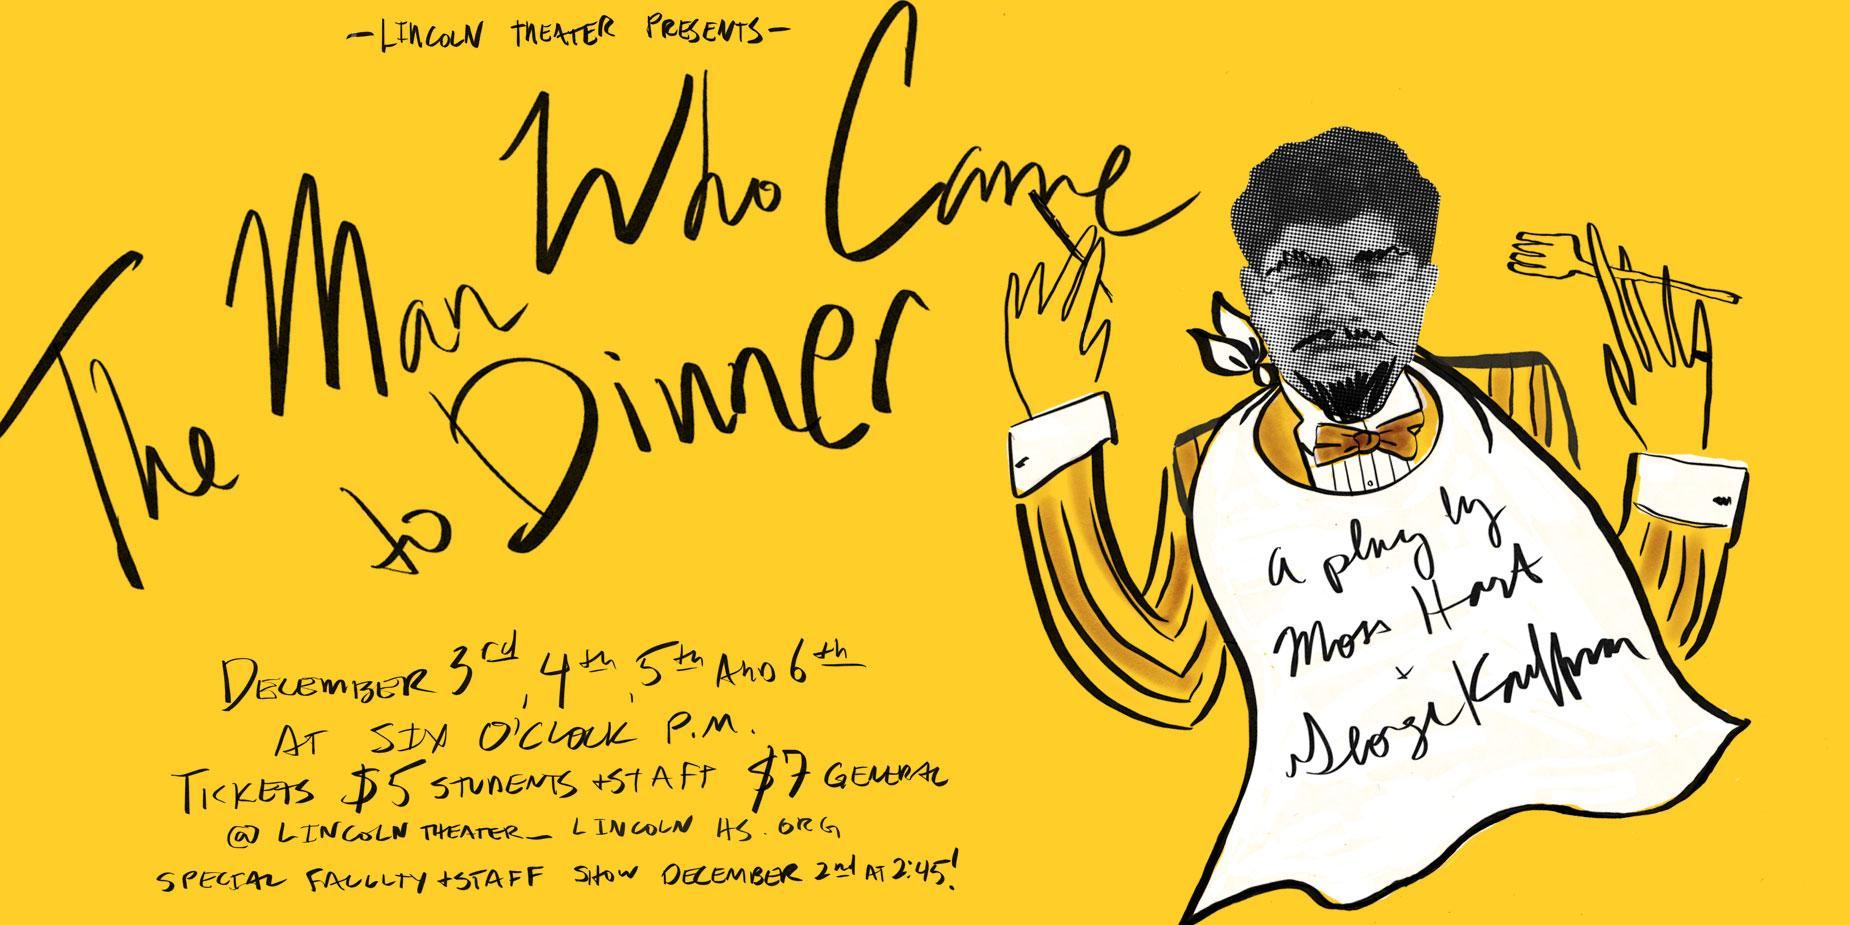 -LINCOLN THEATER PRESENTS-
The Man Who Came
to Dinner
DECEMBER 3rd, 4th, 5th AND 6th
AT SIX O'CLOCK P.M.
TICKETS $5 STUDENTS +STAFF $7 GENERAL
@ LINCOLN THEATER_ LINCOLN HS.ORG
SPECIAL FACULTY +STAFF SHOW DECEMBER 2nd AT 2:45!
a play by
Moss Hart
+
George Kauffman